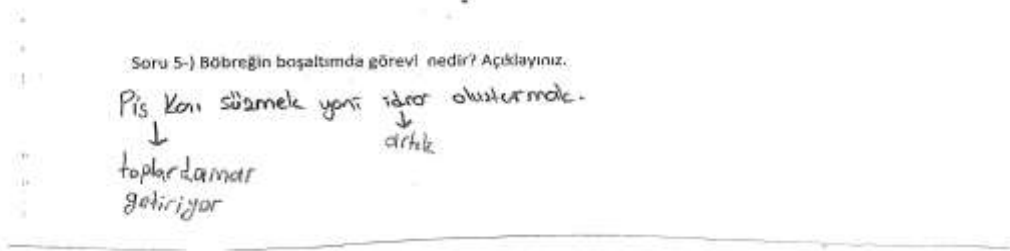 Soru 5-) Böbreğin boşaltımda görevi nedir? Açıklayınız.
Pis kanı süzmek yani idrar oluşturmak.
artık
toplardamar
getiriyor